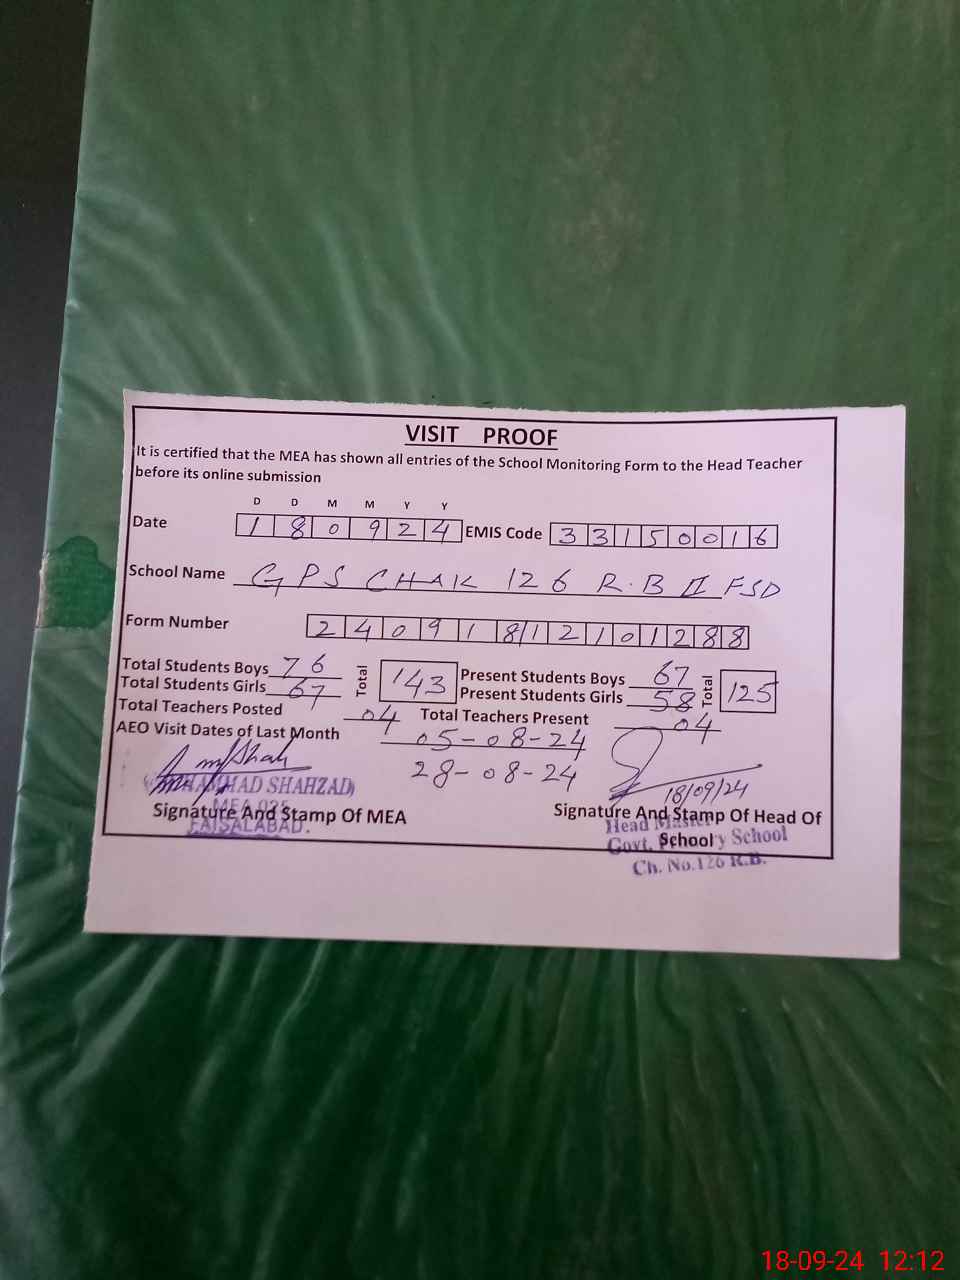 VISIT PROOF
It is certified that the MEA has shown all entries of the School Monitoring Form to the Head Teacher
before its online submission
D D M M Y Y
Date 1 8 0 9 2 4 EMIS Code 3 3 1 5 0 0 1 6
School Name GPS CHAK 126 R.B II FSD
Form Number 2 4 0 9 1 8 1 2 1 0 1 2 8 8
Total Students Boys 76 Total 143 Present Students Boys 67 Total 125
Total Students Girls 67 Present Students Girls 58
Total Teachers Posted 04 Total Teachers Present 04
AEO Visit Dates of Last Month 05-08-24
28-08-24
18/09/24
MUHAMMAD SHAHZAD
MEA
FAISALABAD.
Signature And Stamp Of MEA
Signature And Stamp Of Head Of
School
Head Master
Govt. School
Ch. No.126 R.B.
18-09-24 12:12